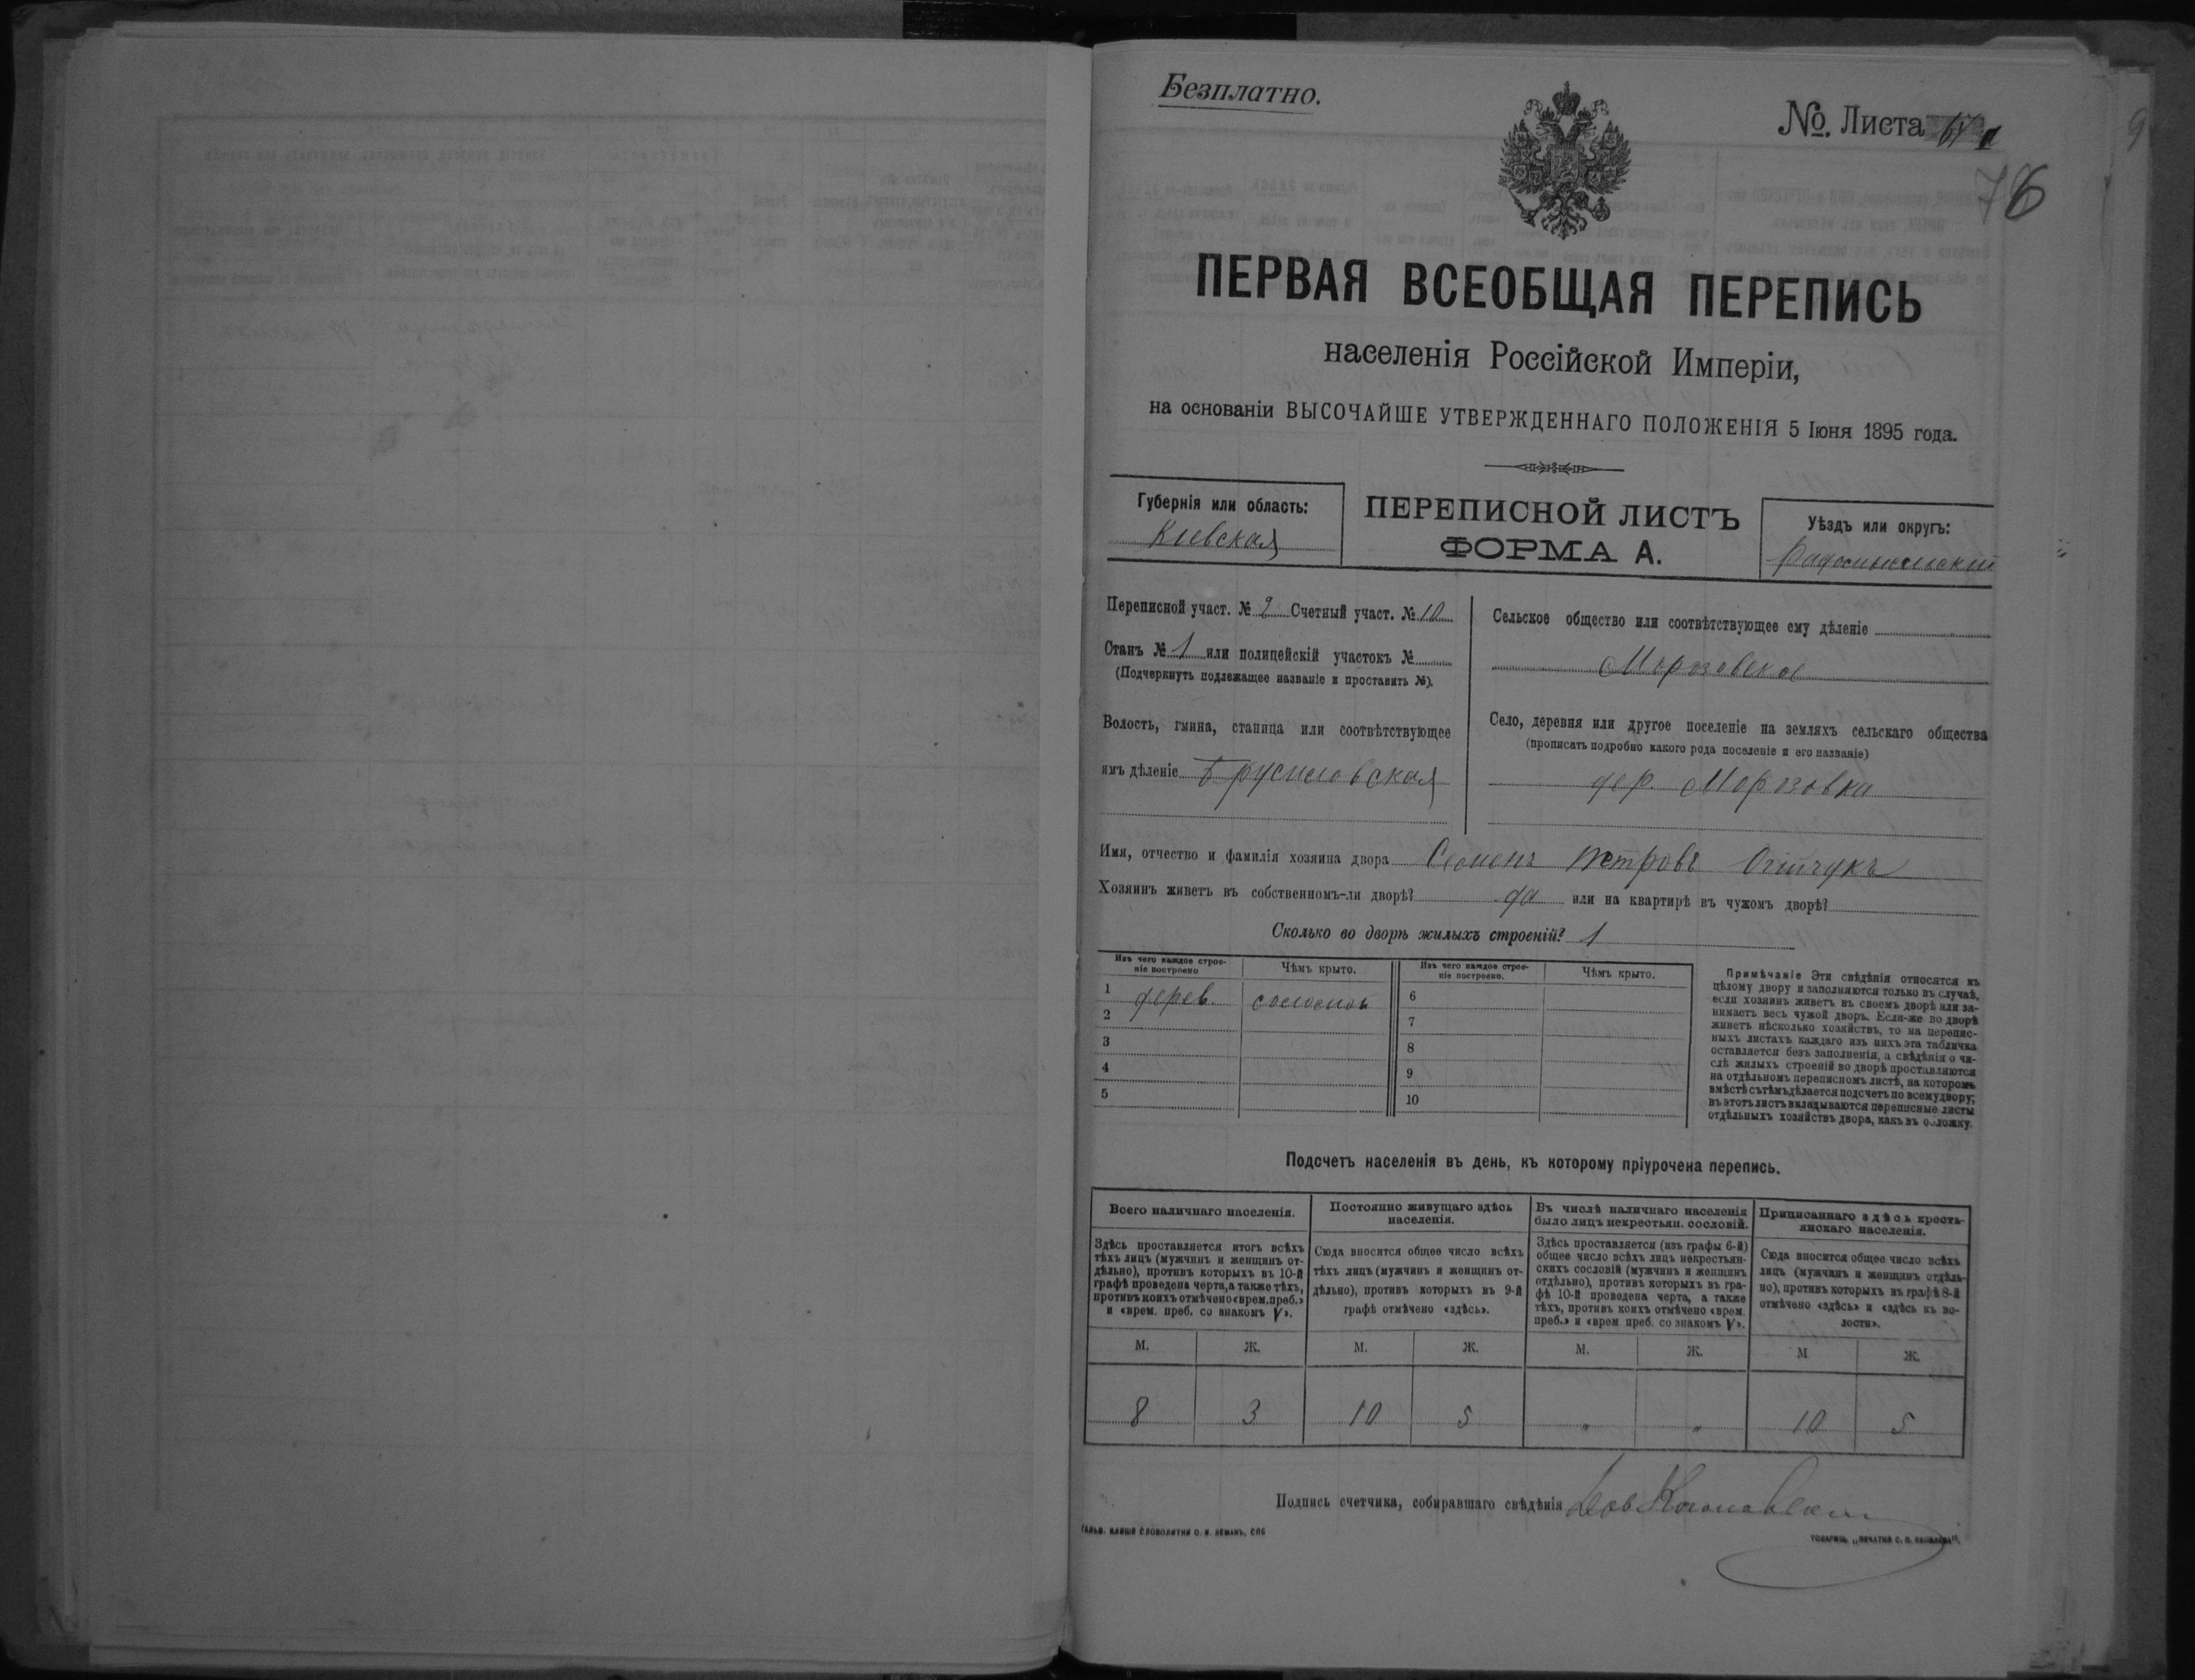 Безплатно.
№. Листа
76
ПЕРВАЯ ВСЕОБЩАЯ ПЕРЕПИСЬ
населенія Россійской Имперіи,
на основаніи ВЫСОЧАЙШЕ УТВЕРЖДЕННАГО ПОЛОЖЕНІЯ 5 Іюня 1895 года.
Губернія или область:
Кіевская
ПЕРЕПИСНОЙ ЛИСТЪ
ФОРМА А.
Уѣздъ или округъ:
Радомысльскій
Переписной участ. № 9 Счетный участ. № 10
Станъ № 1 или полицейскій участокъ №
(Подчеркнуть подлежащее названіе и проставить №).
Волость, гмина, станица или соотвѣтствующее
имъ дѣленіе Брусиловская
Сельское общество или соотвѣтствующее ему дѣленіе
Морозовское
Село, деревня или другое поселеніе на земляхъ сельскаго общества
(прописать подробно какого рода поселеніе и его названіе)
дер. Морозовка
Имя, отчество и фамилія хозяина двора Семенъ Петровъ
Хозяинъ живетъ въ собственномъ-ли дворѣ? да или на квартирѣ въ чужомъ дворѣ?
Сколько во дворѣ жилыхъ строеній? 1
Изъ чего каждое строе-
ніе построено
Чѣмъ крыто.
Изъ чего каждое строе-
ніе построено.
Чѣмъ крыто.
1 дерев. соломой
2
3
4
5
6
7
8
9
10
Примѣчаніе Эти свѣдѣнія относятся къ
цѣлому двору и заполняются только въ случаѣ,
если хозяинъ живетъ въ своемъ дворѣ или за-
нимаетъ весь чужой дворъ. Если-же во дворѣ
живетъ нѣсколько хозяйствъ, то на перепис-
ныхъ листахъ каждаго изъ нихъ эта табличка
оставляется безъ заполненія, а свѣдѣнія о чи-
слѣ жилыхъ строеній во дворѣ проставляются
на отдѣльномъ переписномъ листѣ, на которомъ
вмѣстѣ съ тѣмъ дѣлается подсчетъ по всему двору;
въ этотъ листъ вкладываются переписные листы
отдѣльныхъ хозяйствъ двора, какъ въ обложку.
Подсчетъ населенія въ день, къ которому пріурочена перепись.
Всего наличнаго населенія.
Здѣсь проставляется итогъ всѣхъ
тѣхъ лицъ (мужчинъ и женщинъ от-
дѣльно), противъ которыхъ въ 10-й
графѣ проведена черта, а также тѣхъ,
противъ коихъ отмѣчено «врем. преб.»
и «врем. преб. со знакомъ V».
Постоянно живущаго здѣсь
населенія.
Сюда вносится общее число всѣхъ
тѣхъ лицъ (мужчинъ и женщинъ от-
дѣльно), противъ которыхъ въ 9-й
графѣ отмѣчено «здѣсь».
Въ числѣ наличнаго населенія
было лицъ некрестьян. сословій.
Здѣсь проставляется (изъ графы 6-й)
общее число всѣхъ лицъ некрестьян-
скихъ сословій (мужчинъ и женщинъ
отдѣльно), противъ которыхъ въ гра-
фѣ 10-й проведена черта, а также
тѣхъ, противъ коихъ отмѣчено «врем.
преб.» и «врем преб. со знакомъ V».
Приписаннаго здѣсь кресть-
янскаго населенія.
Сюда вносится общее число всѣхъ
лицъ (мужчинъ и женщинъ отдѣль-
но), противъ которыхъ въ графѣ 8-й
отмѣчено «здѣсь» и «здѣсь къ во-
лости».
М. Ж. М. Ж. М. Ж. М Ж.
8 3 10 5 „ „ 10 5
Подпись счетчика, собиравшаго свѣдѣнія
ГАЛЬВ. КЛИШЕ СЛОВОЛИТНИ О. И. ЛЕМАНЪ, СПБ
ТОВАРИЩ. „ПЕЧАТНЯ С. П. ЯКОВЛЕВА".